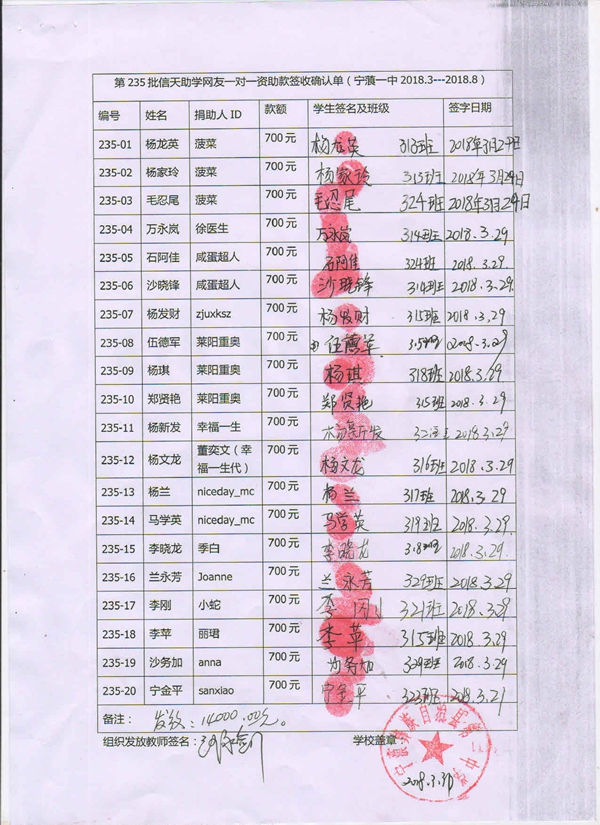 第235批信天助学网友一对一资助款签收确认单（宁蒗一中2018.3---2018.8）
编号 姓名 捐助人ID 款额 学生签名及班级 签字日期
235-01 杨龙英 菠菜 700元 杨龙英 313班 2018年3月29日
235-02 杨家玲 菠菜 700元 杨家玲 315班 2018年3月29日
235-03 毛忍尾 菠菜 700元 毛忍尾 324班 2018年3月29日
235-04 万永岚 徐医生 700元 万永岚 314班 2018.3.29
235-05 石阿佳 咸蛋超人 700元 石阿佳 324班 2018.3.29
235-06 沙晓锋 咸蛋超人 700元 沙晓锋 314班 2018.3.29
235-07 杨发财 zjuxksz 700元 杨发财 315班 2018.3.29
235-08 伍德军 莱阳重奥 700元 伍德军 2018.3.29
235-09 杨琪 莱阳重奥 700元 杨琪 318班 2018.3.29
235-10 郑贤艳 莱阳重奥 700元 郑贤艳 315班 2018.3.29
235-11 杨新发 幸福一生 700元 杨新发 2018.3.29
235-12 杨文龙 董奕文（幸福一生代） 700元 杨文龙 316班 2018.3.29
235-13 杨兰 niceday_mc 700元 杨兰 317班 2018.3.29
235-14 马学英 niceday_mc 700元 马学英 319班 2018.3.29
235-15 李晓龙 季白 700元 李晓龙 2018.3.29
235-16 兰永芳 Joanne 700元 兰永芳 329班 2018.3.29
235-17 李刚 小蛇 700元 李刚 321班 2018.3.29
235-18 李苹 丽珺 700元 李苹 315班 2018.3.29
235-19 沙务加 anna 700元 务加 329班 2018.3.29
235-20 宁金平 sanxiao 700元 宁金平 323班 2018.3.21
备注： 发放：14000.00元。
组织发放教师签名： 学校盖章
2018.3.30